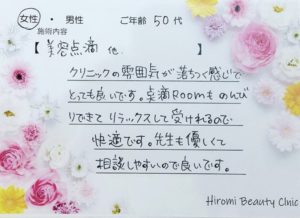 女性 ・ 男性 ご年齢 50代
施術内容
【 美容点滴 他. 】
クリニックの雰囲気が落ちつく感じで
とっても良いです。点滴Roomものんび
りできてリラックスして受けれるので
快適です。先生も優しくて
相談しやすいので良いです。
Hiromi Beauty Clinic